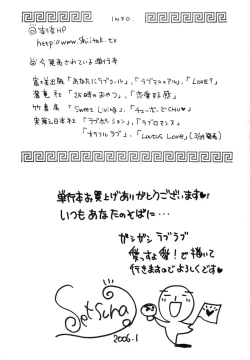 INFO.
http://www.shiitak.tv
◎今発売されている単行本
富士美出版「あなたにラブコール」、「ラブマニュアル」、「LOVE?」
「25時のおやつ」、「恋愛する体」
竹書房「Sweet Living」、「チェリーボーでCHU♥」
実業之日本社「ラブポーション」、「ラブロマンス」
「カラフルラブ」、「Lotus Love」
単行本お買上げありがとうございます♥
いつもあなたのそばに…
ガシガシラブラブ
愛っすよ愛!で描いて
行きますのでよろしくです♥
Setsuna
2006.1